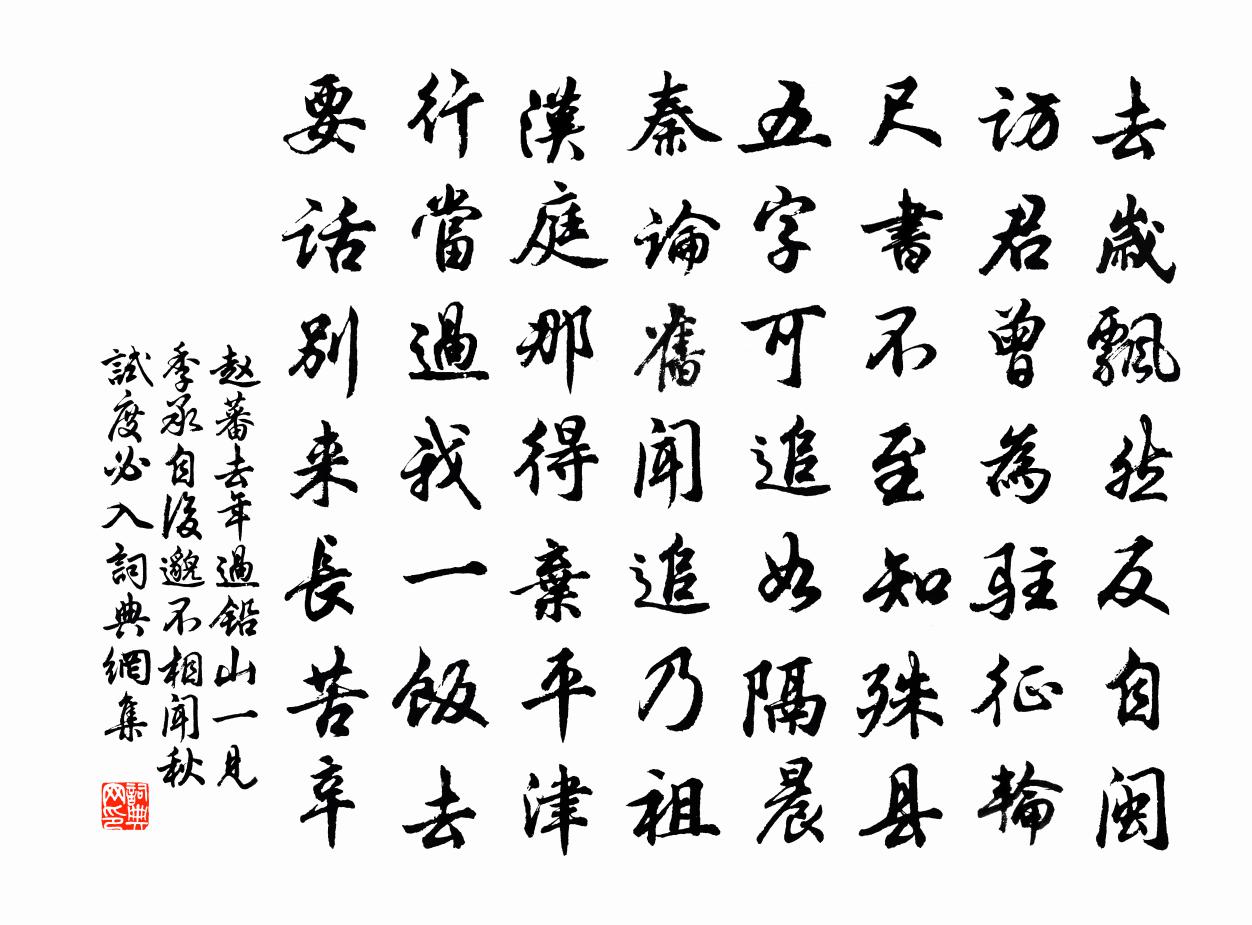 去歲飄然反自閩
訪君曾為駐征輪
尺書不至知殊县
五字可追如隔晨
秦論舊聞追乃祖
漢庭那得棄平津
行當過我一飯去
要話別来長苦辛
赵蕃去年過鉛山一見
季承自後邈不相聞秋
試度必入詞典網集
詞典网印